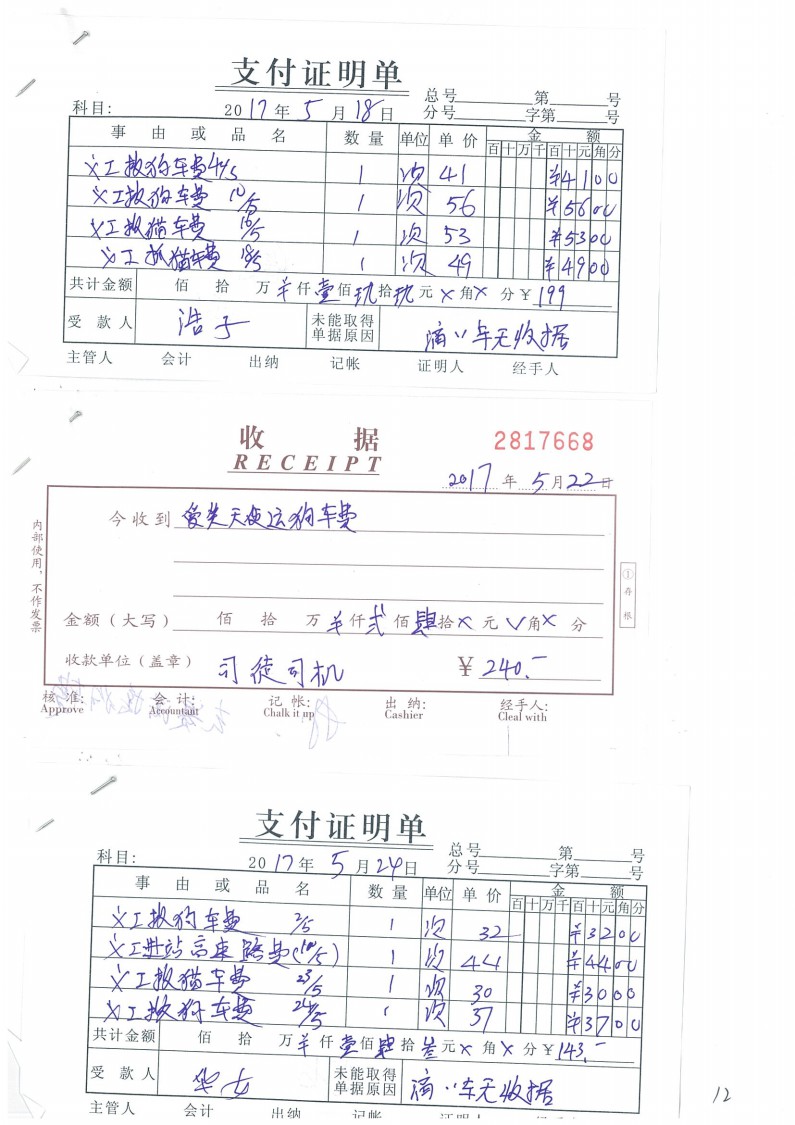 支付证明单
总号 第 号
科目: 2017年5月18日 分号 字第 号
事由或品名 数量 单位 单价 金额
百十万千百十元角分
义工救狗车费 4/5 1 次 41 ¥4100
义工救狗车费 10/5 1 次 56 ¥5600
义工救猫车费 16/5 1 次 53 ¥5300
义工抓猫车费 18/5 1 次 49 ¥4900
共计金额 佰 拾 万 ¥仟壹佰玖拾玖元×角×分 ¥199
受款人 浩子 未能取得单据原因 滴滴车无收据
主管人 会计 出纳 记帐 证明人 经手人
收据 2817668
RECEIPT
2017年5月22日
今收到 爱美天使运狗车费
金额(大写) 佰 拾 万 ¥仟贰佰肆拾×元×角×分
收款单位(盖章) 司徒司机 ¥240.-
核准: 会计: 记帐: 出纳: 经手人:
Approve Accountant Chalk it up Cashier Cleal with
内部使用,不作发票
①存根
支付证明单
总号 第 号
科目: 2017年5月24日 分号 字第 号
事由或品名 数量 单位 单价 金额
百十万千百十元角分
义工救狗车费 2/5 1 次 32 ¥3200
义工进站高速路费(10/5) 1 次 44 ¥4400
义工救猫车费 23/5 1 次 30 ¥3000
义工救狗车费 24/5 1 次 37 ¥3700
共计金额 佰 拾 万 ¥仟壹佰肆拾叁元×角×分 ¥143.-
受款人 华女 未能取得单据原因 滴滴车无收据
主管人 会计 出纳 记帐 证明人
12